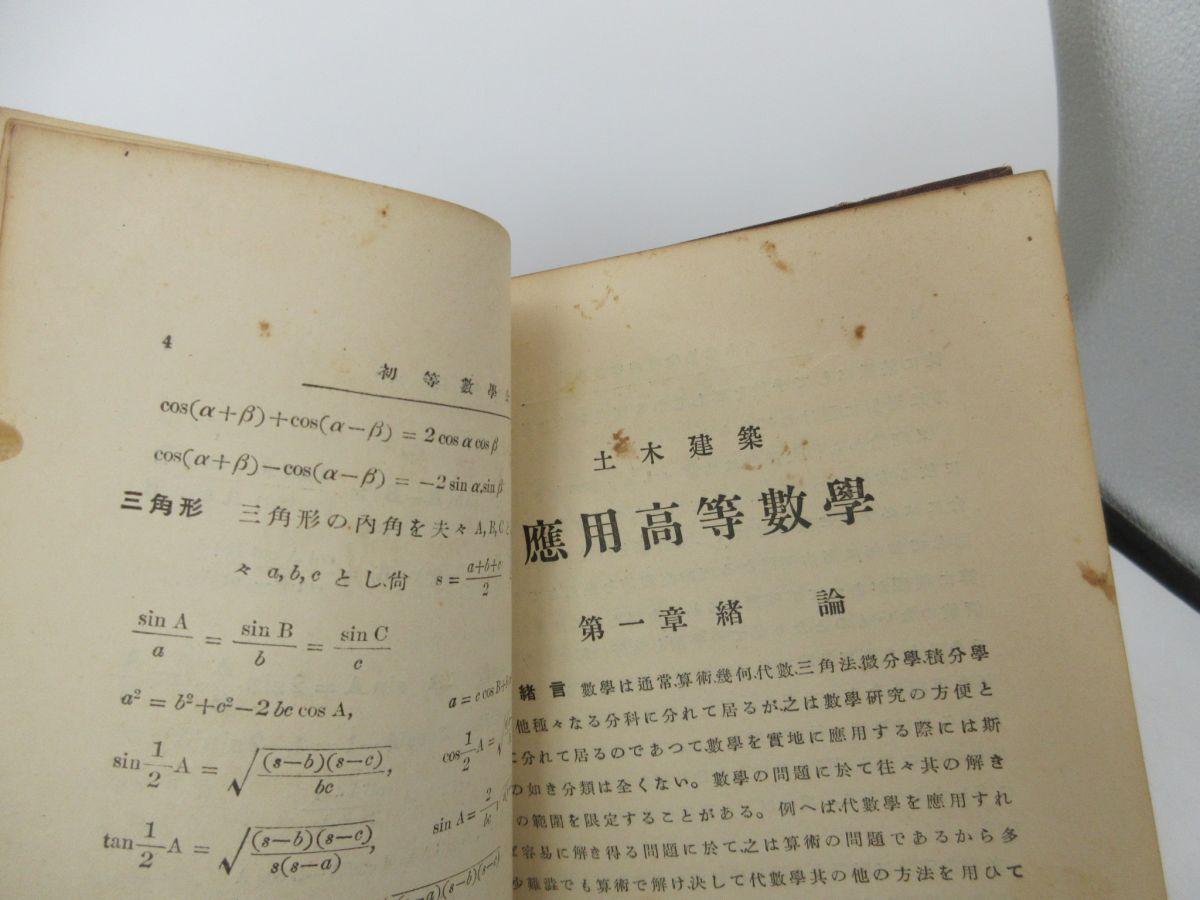 4
初等數學
cos(α+β)+cos(α−β) = 2 cos α cos β
cos(α+β)−cos(α−β) = −2 sin α, sin β
三角形 三角形の內角を夫々 A, B, C
々 a, b, c とし、尙 s = (a+b+c)/2
sin A/a = sin B/b = sin C/c
a² = b²+c²−2 bc cos A, a = c cos B+
sin 1/2 A = √((s−b)(s−c)/bc), cos 1/2 A = √
tan 1/2 A = √((s−b)(s−c)/s(s−a)), sin A = 2/bc
−a)(s−b)(s−c)
土木建築
應用高等數學
第一章 緖論
緖言 數學は通常、算術、幾何、代數、三角法、微分學、積分學
他種々なる分科に分れて居るが、之は數學研究の方便と
に分れて居るのであつて、數學を實地に應用する際には斯
の如き分類は全くない。數學の問題に於て往々其の解き
の範圍を限定することがある。例へば、代數學を應用すれ
ば容易に解き得る問題に於て、之は算術の問題であるから多
少難澁でも算術で解け、決して代數學其の他の方法を用ひて